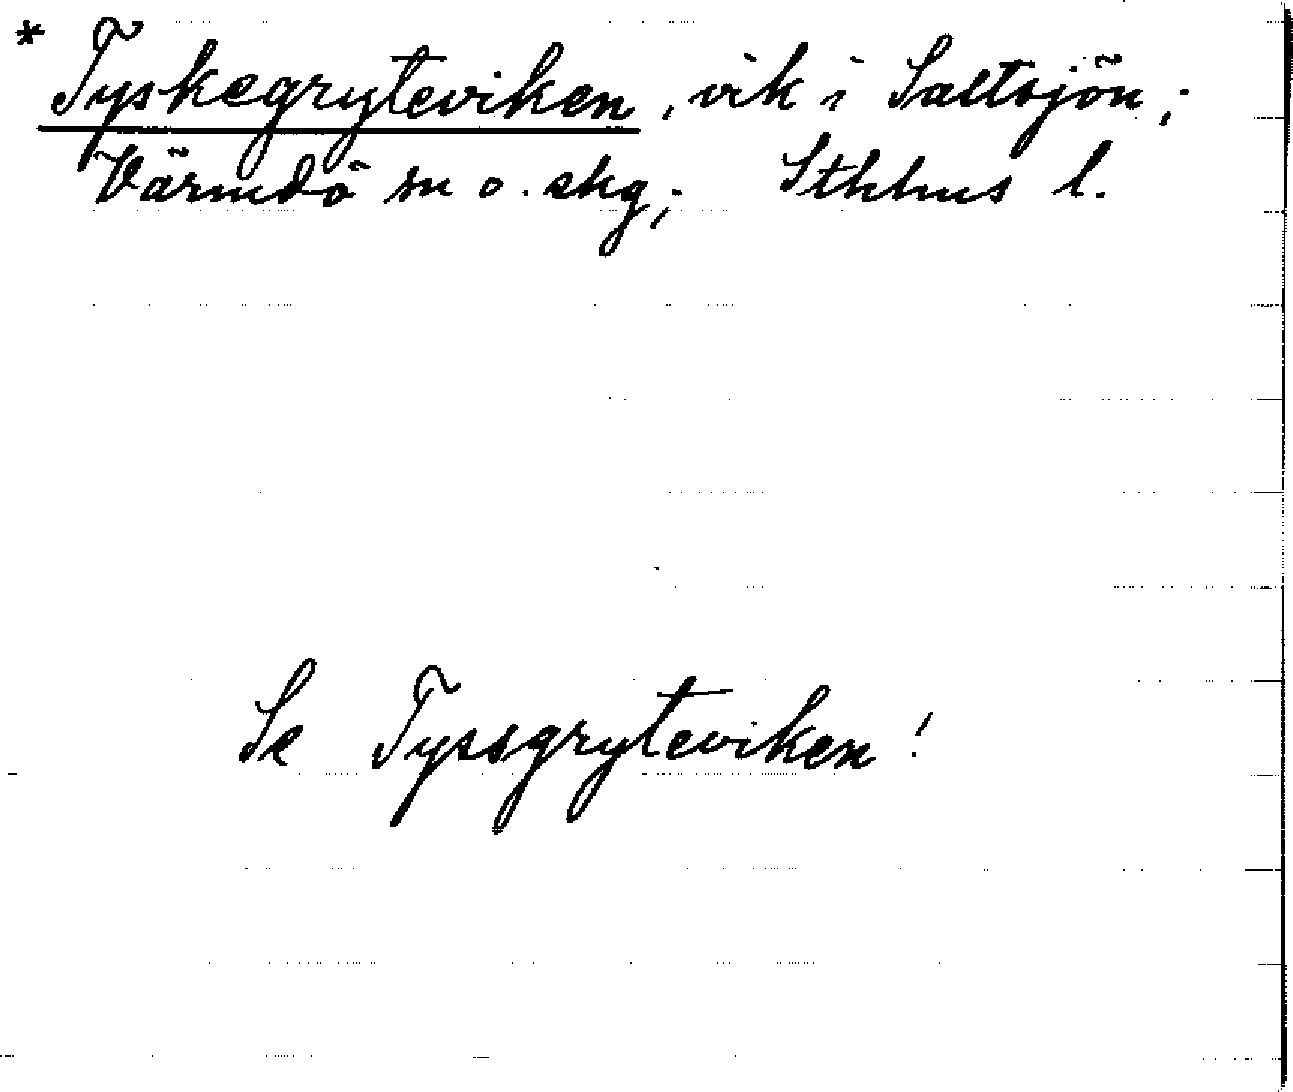 * Tyskegryteviken, vik i Saltsjön;
Värmdö sn o. skg; Sthlms l.
Se Tyssgryteviken!